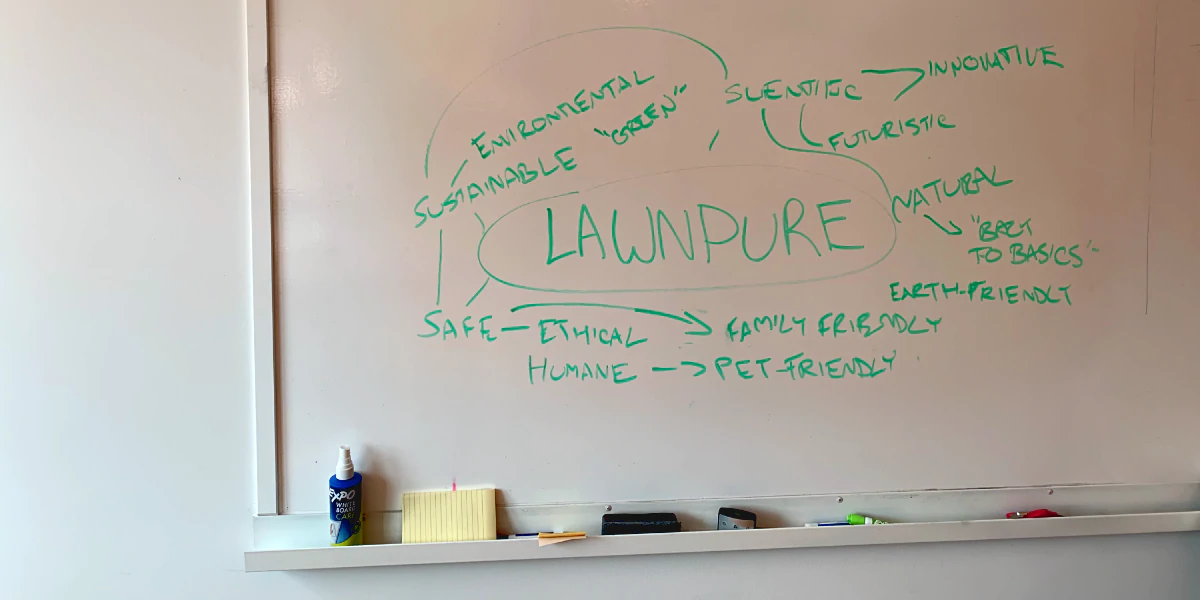 ENVIRONMENTAL
"GREEN"
SUSTAINABLE
SCIENTIFIC
INNOVATIVE
FUTURISTIC
NATURAL
"BACK
TO BASICS"
EARTH-FRIENDLY
LAWNPURE
SAFE — ETHICAL
FAMILY FRIENDLY
HUMANE —> PET-FRIENDLY
EXPO
WHITE
BOARD
CARE